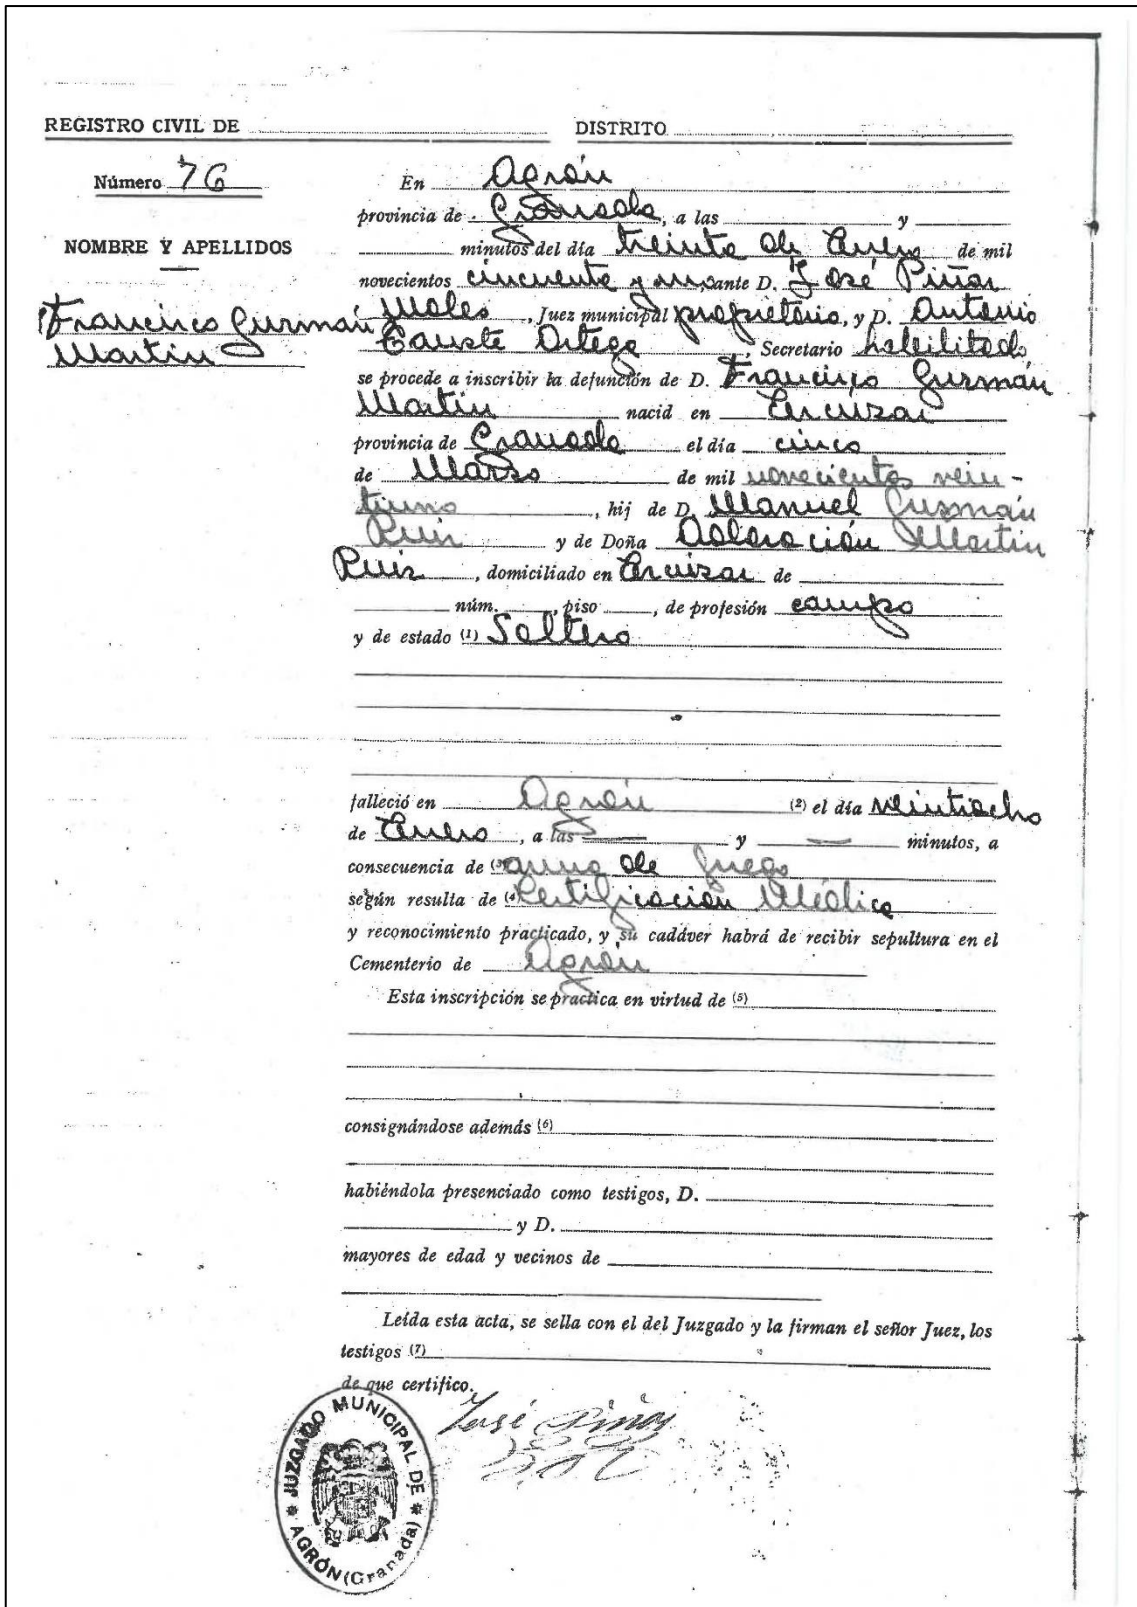 REGISTRO CIVIL DE DISTRITO
Número 76
NOMBRE Y APELLIDOS
Francisco Guzmán
Martin
En Agrón
provincia de Granada, a las y
minutos del día treinta de Enero de mil
novecientos cincuenta y un, ante D. José Piñar
Moles, Juez municipal propietario, y D. Antonio
Causte Ortega, Secretario habilitado
se procede a inscribir la defunción de D. Francisco Guzmán
Martin nacid en
provincia de Granada el día cinco
de Marzo de mil novecientos vein-
tiuno, hij de D. Manuel Guzmán
Ruiz y de Doña Adoración Martin
Ruiz, domiciliado en de
núm. , piso , de profesión campo
y de estado (1) Soltero
falleció en Agrón (2) el día veintiocho
de Enero, a las — y — minutos, a
consecuencia de (3) arma de fuego
según resulta de (4) Certificación Médica
y reconocimiento practicado, y su cadáver habrá de recibir sepultura en el
Cementerio de Agrón
Esta inscripción se practica en virtud de (5)
consignándose además (6)
habiéndola presenciado como testigos, D.
y D.
mayores de edad y vecinos de
Leída esta acta, se sella con el del Juzgado y la firman el señor Juez, los
testigos (7)
de que certifico.
José Piñar
JUZGADO MUNICIPAL DE
AGRÓN (Granada)